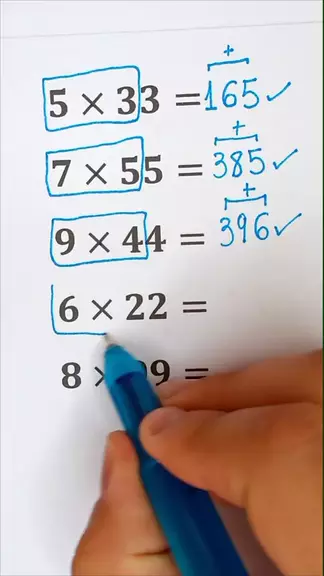 +
5 × 33 = 165 ✓
+
7 × 55 = 385 ✓
+
9 × 44 = 396 ✓
6 × 22 =
8 × 9 =